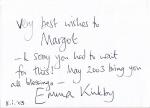 Very best wishes to
Margot
— & sorry you had to wait
for this! May 2003 bring you
all blessings —
Emma Kirkby
8.i.03